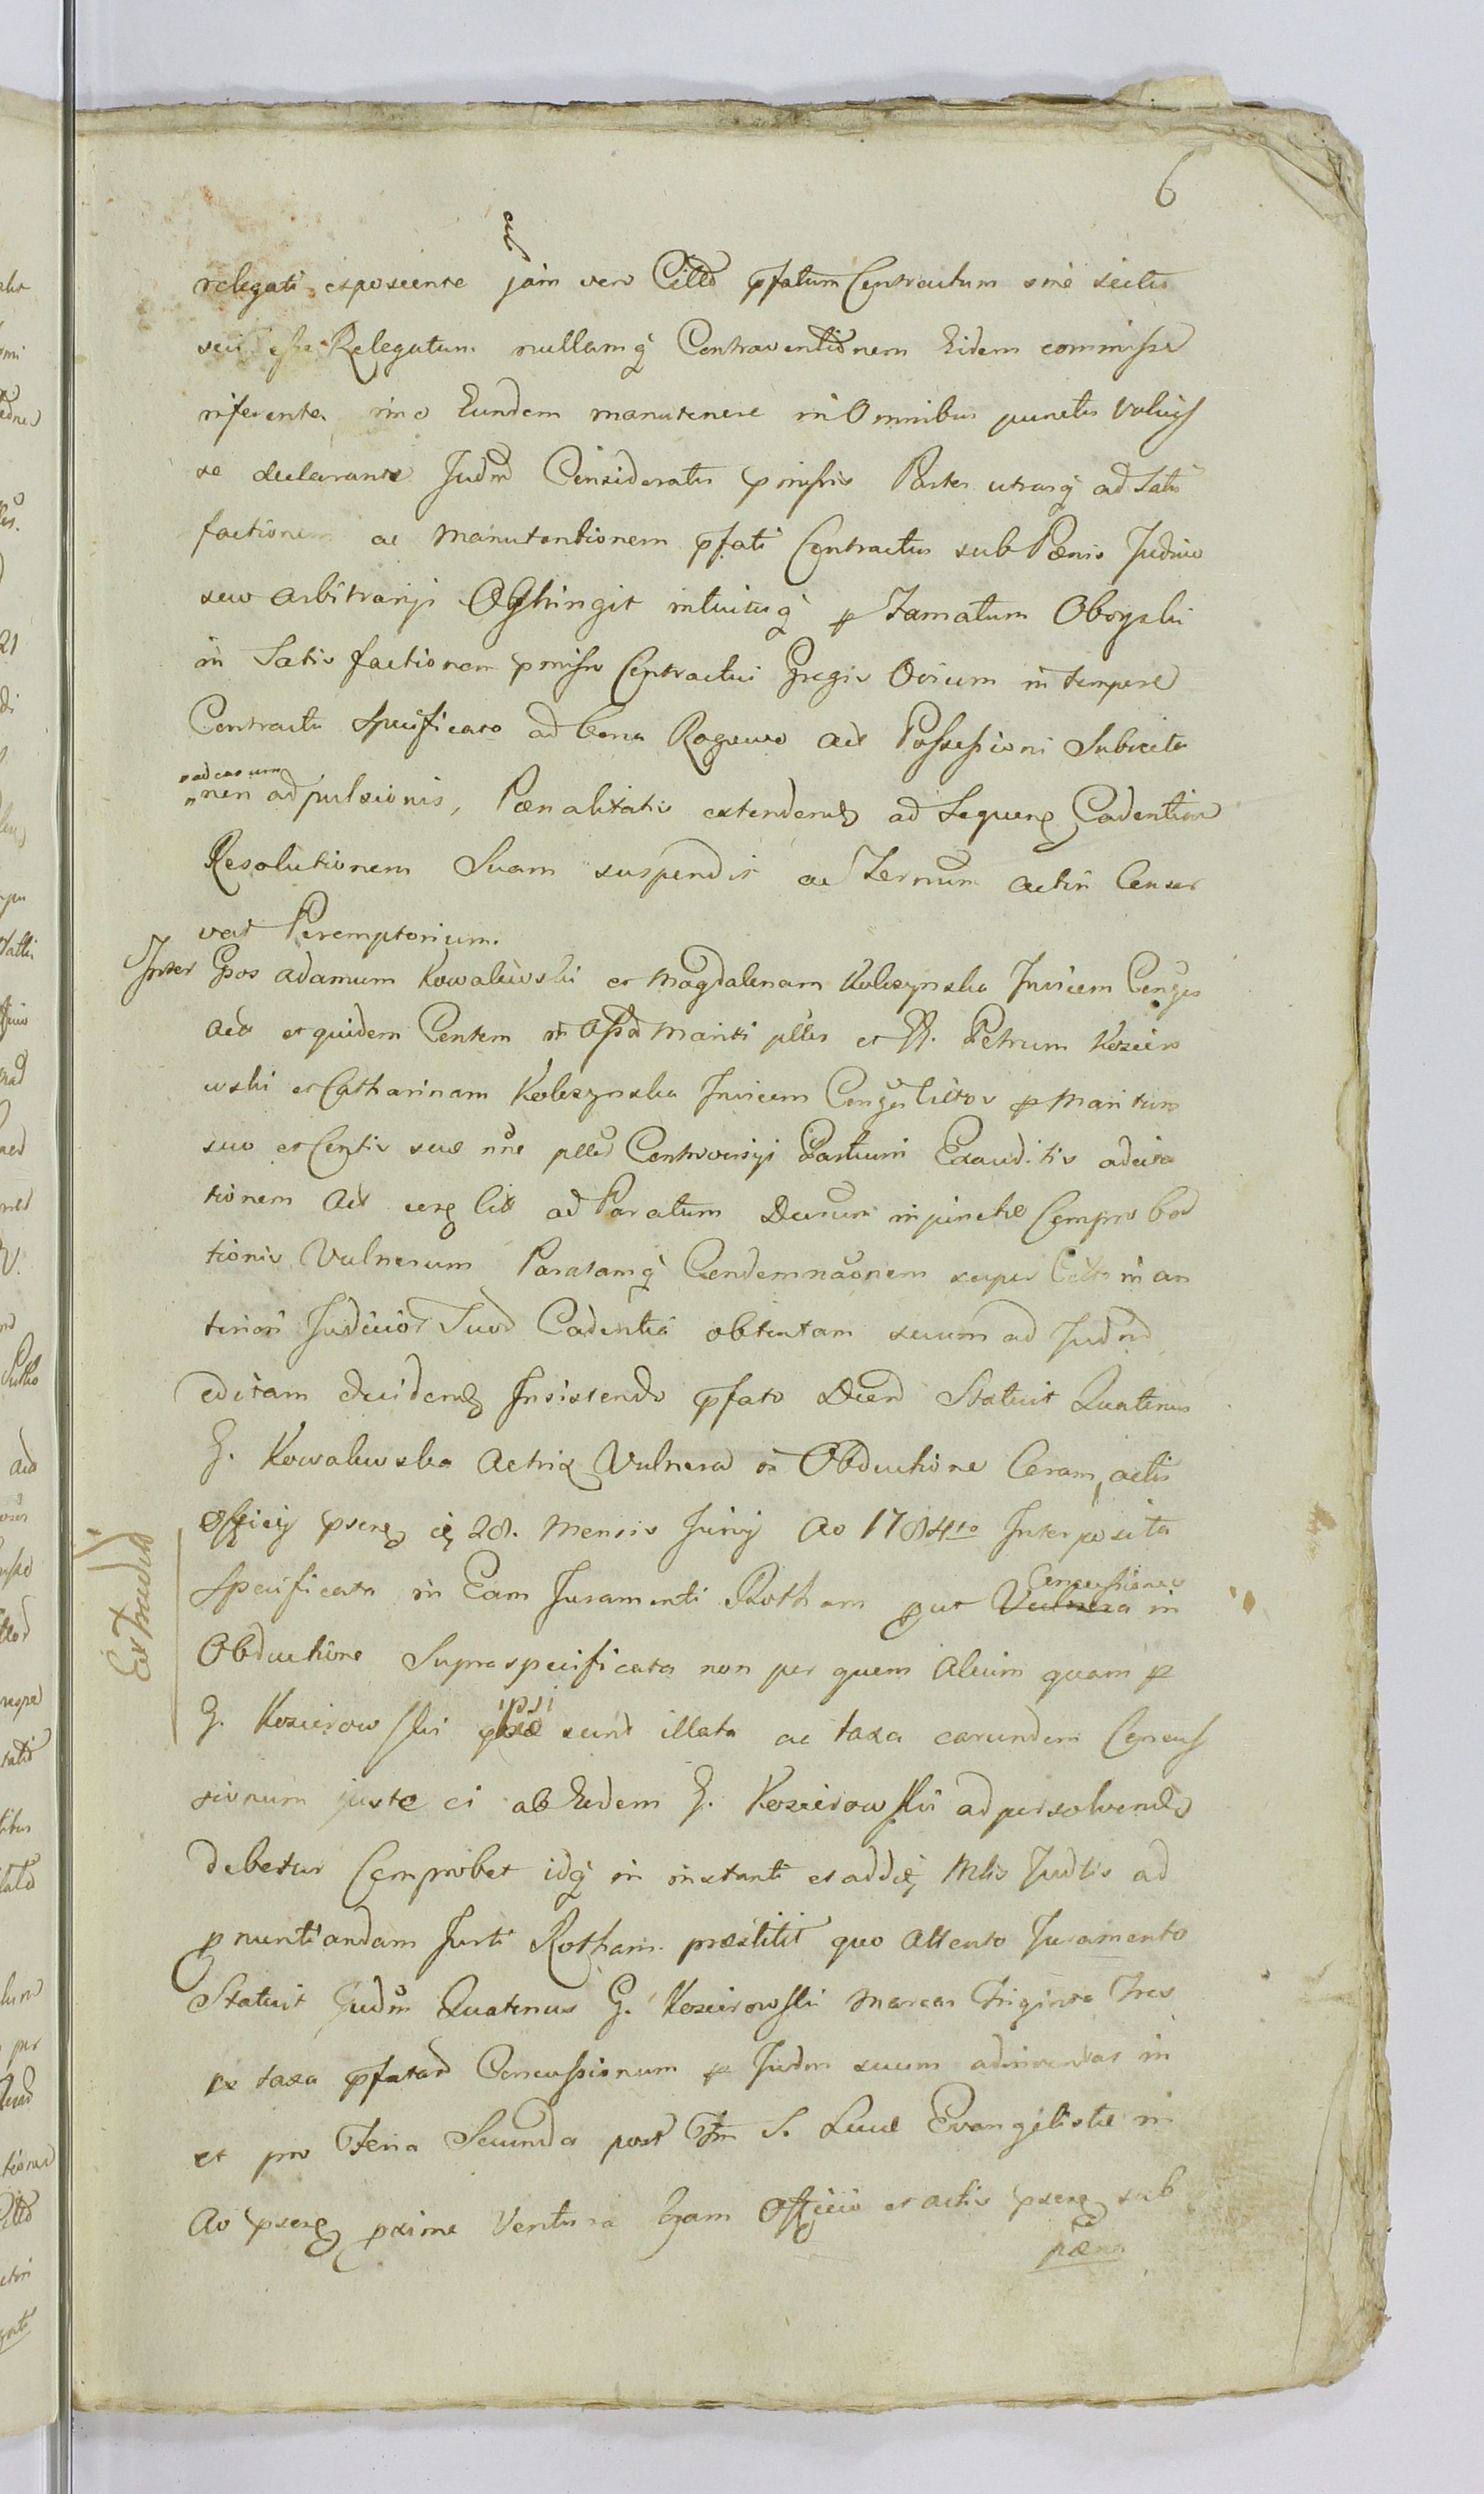 6
relegati exposcente jam vero Citto pfatum Contractum sine
esse Relegatum nullamq Contraventionem Eidem commisse
referente imo Eundem manutenere in Omnibus punctis
se declarante Judm Consideratis pmissis Partes utrasq ad Satis
factionem ac Manutentionem pfati Contractus sub Pænis Judicio
suo arbitrarijs intuituq p Famatum
in Satisfactionem pmissi Contractui Gregis Ovium in tempore
Contractu Specificato ad bona Rogowo Possessioni Subiecta
ad casum
non adpulsionis, Pænalitatis extendend ad Sequen Cadentiam
Resolutionem Suam suspendit ac Ternum actui Conser
vat Peremptorium.
Inter Gsos Adamum Kowalewski et Magdalenam Kolczynska Invicem Conges
Act et quidem Contem in Assa Mariti et G. Petrum Koziero
wski et Catharinam Kolczynska Invicem Conges Cittos p Maritum
suo et Contis suæ nne Controversijs Partium Exauditis ad cita
tionem Act Cit ad Paratum Decretum in puncto Comproba
tionis Vulnerum Paratamq Condemnaonem super Cittis in an
teriori Judicior Suor Cadentia obtentam suum ad Judm
editam Insistendo pfato Decre Statuit Quatenus
G. Kowalewska Actrix Vulnera in Obductione Coram actis
Officij psen 28. Mensis Junij Ao 1784to Interposita
Specificata in Eam Juramenti Rotham put Vulnera Concussiones in
Extrad
Obductione Supraspecificata non per quem alium quam p
G. Kozierowski ipsi sunt illata ac taxa earundem Concus
sionum juste ei ab Eodem G. Kozierowski ad persolvend
debetur Comprobet idq in instanti et Mlis Judlis ad
pnuntiandam Jurti Rotham præstitit quo attento Juramento
Statuit Judm Quatenus G. Kozierowski Marcas Triginta Tres
ex taxa pfatar Concussionum p Judm suum adinventas in
et pro Feria Secunda post Ftm S. Lucæ Evangelistæ in
Ao psen pxime Ventura Coram Officio et actis psen sub
pæna